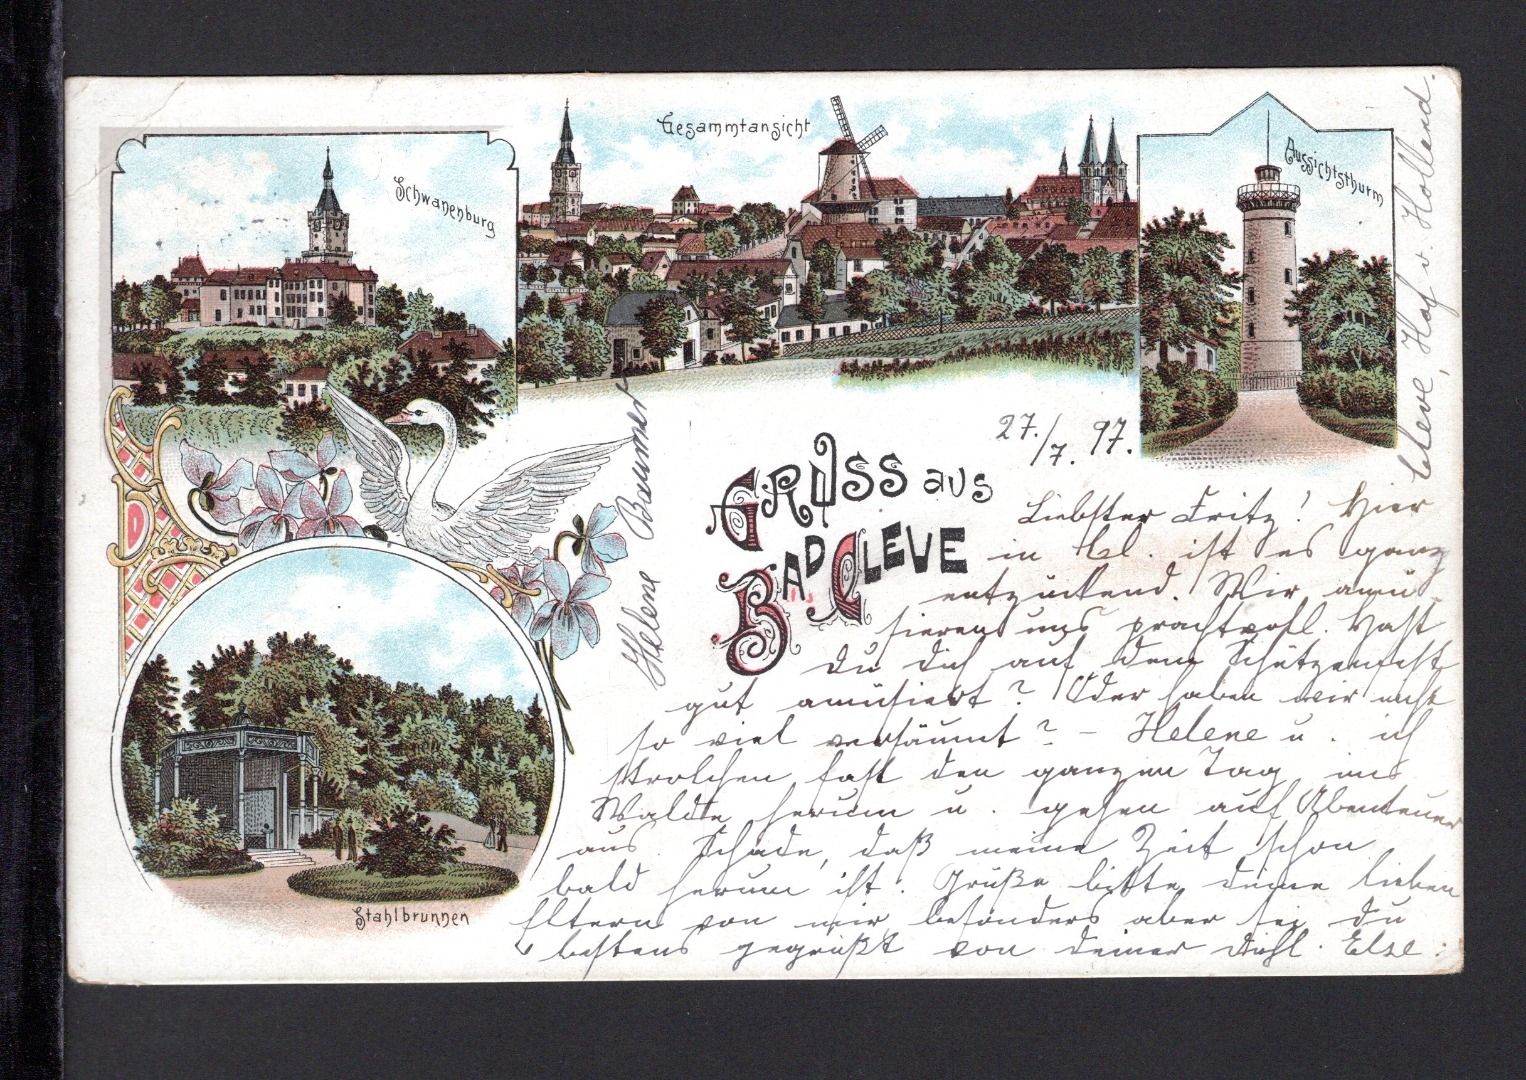 Gesammtansicht
Schwanenburg
Aussichtsthurm
Stahlbrunnen
GRUSS aus
BAD CLEVE
27./7. 97.
Cleve, v. Holland.
Helene Baumer
Liebster Fritz! Hier
in Cl. ist es ganz
entzückend. Wir amü-
sieren uns prachtvoll. Hast
Du Dich auf dem Schützenfest
gut amüsiert? Oder haben wir nicht
so viel versäumt? - Helene u. ich
strolchen fast den ganzen Tag im
Walde herum u. gehen auf Abenteuer
aus. Schade, daß meine Zeit schon
bald herum ist. Grüße bitte deine lieben
Eltern von mir besonders aber sei Du
bestens gegrüßt von deiner Else.